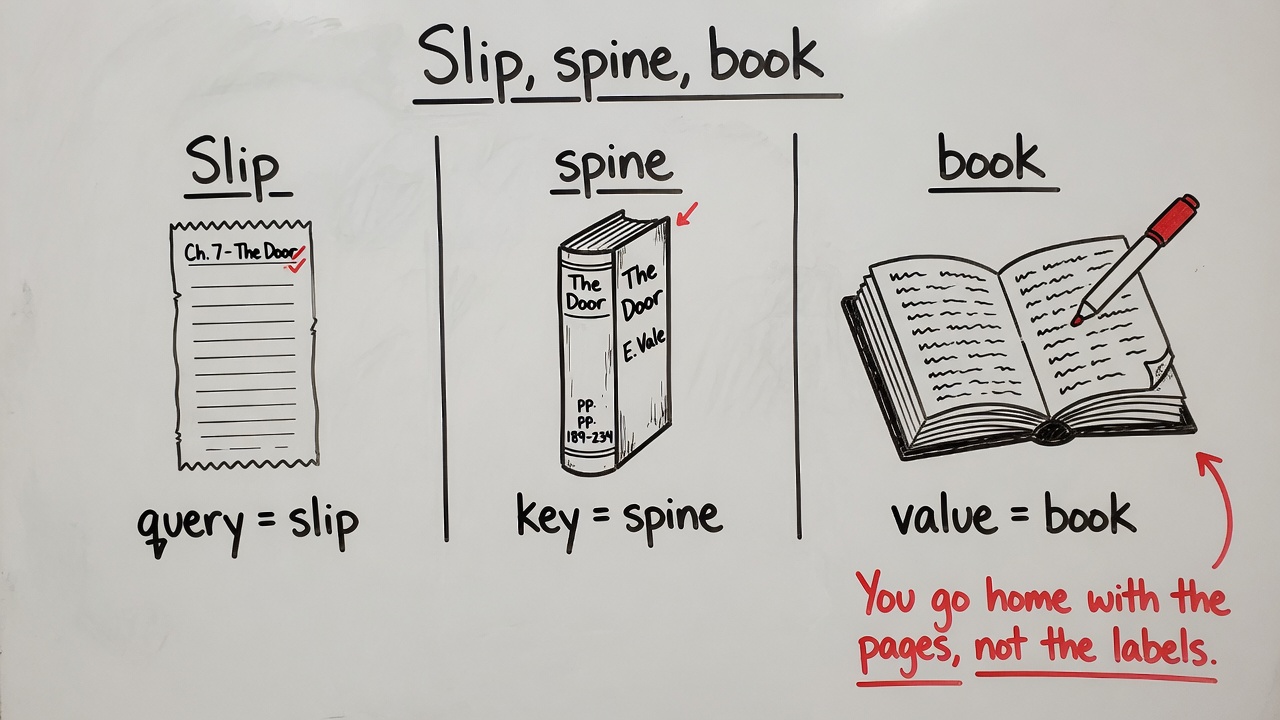 Slip, spine, book
Slip
Ch. 7 - The Door
query = slip
spine
The
Door
PP.
PP.
189-234
The
Door
E. Vale
key = spine
book
value = book
You go home with the
pages, not the labels.